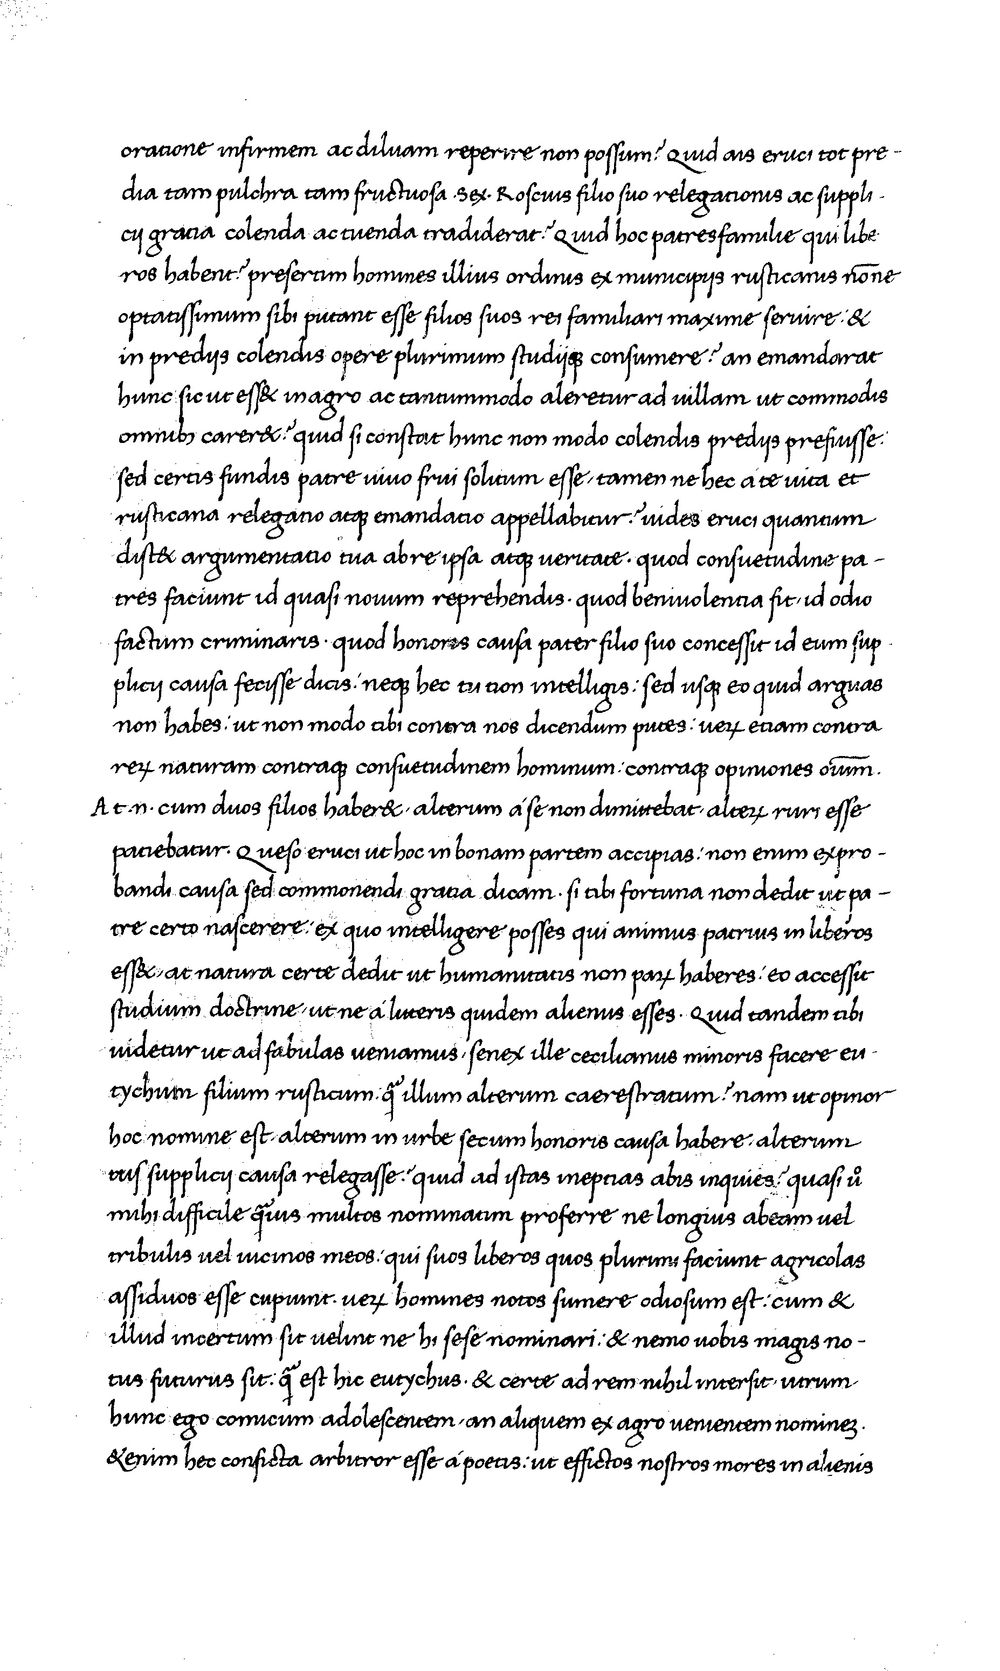 oratione infirmem ac diluam reperire non possum? Quid ais eruci tot pre-
dia tam pulchra tam fructuosa .Sex. Roscius filio suo relegationis ac suppli-
cij gratia colenda ac tuenda tradiderat? Quid hoc patresfamilie qui libe
ros habent? presertim homines illius ordinis ex municipijs rusticanis nōne
optatissimum sibi putant esse filios suos rei familiari maxime seruire: &
in predijs colendis opere plurimum studijqꝫ consumere? an emandarat
hunc sic ut ess& in agro ac tantummodo aleretur ad uillam ut commodis
omnibꝫ carer&? quid si constat hunc non modo colendis predijs prefuisse:
sed certis fundis patre uiuo frui solitum esse, tamen ne hec a te uita et
rusticana relegatio atqꝫ emandatio appellabitur? uides eruci quantum
dist& argumentatio tua ab re ipsa atqꝫ ueritate. quod consuetudine pa-
tres faciunt id quasi nouum reprehendis. quod beniuolentia fit, id odio
factum criminaris. quod honoris causa pater filio suo concessit id eum sup-
plicij causa fecisse dicis: neqꝫ hec tu non intelligis: sed usqꝫ eo quid arguas
non habes: ut non modo tibi contra nos dicendum putes: ueꝝ etiam contra
reꝝ naturam contraqꝫ consuetudinem hominum: contraqꝫ opiniones oīum.
At.n. cum duos filios haber&, alterum á se non dimittebat, alteꝝ ruri esse
patiebatur. Queso eruci ut hoc in bonam partem accipias: non enim expro-
bandi causa sed commonendi gratia dicam. si tibi fortuna non dedit ut pa-
tre certo nascerere: ex quo intelligere posses qui animus patrius in liberos
ess&, at natura certe dedit ut humanitatis non paꝝ haberes: eo accessit
studium doctrine, ut ne á litteris quidem alienus esses. Quid tandem tibi
uidetur ut ad fabulas ueniamus, senex ille cecilianus minoris facere eu-
tychum filium rusticum: q̄ illum alterum caerestratum? nam ut opinor
hoc nomine est, alterum in urbe secum honoris causa habere, alterum
ruis supplicij causa relegasse? quid ad istas ineptias abis inquies? quasi uͦ
mihi difficile q̄uis multos nominatim proferre ne longius abeam uel
tribulis uel uicinos meos: qui suos liberos quos plurimi faciunt agricolas
assiduos esse cupiunt. ueꝝ homines notos sumere odiosum est: cum &
illud incertum sit uelint ne hi sese nominari: & nemo uobis magis no-
tus futurus sit: q̄ est hic eutychus. & certe ad rem nihil intersit, utrum
hunc ego comicum adolescentem, an aliquem ex agro uenientem nomineꝫ.
&enim hec conficta arbitror esse á poetis: ut effictos nostros mores in alienis